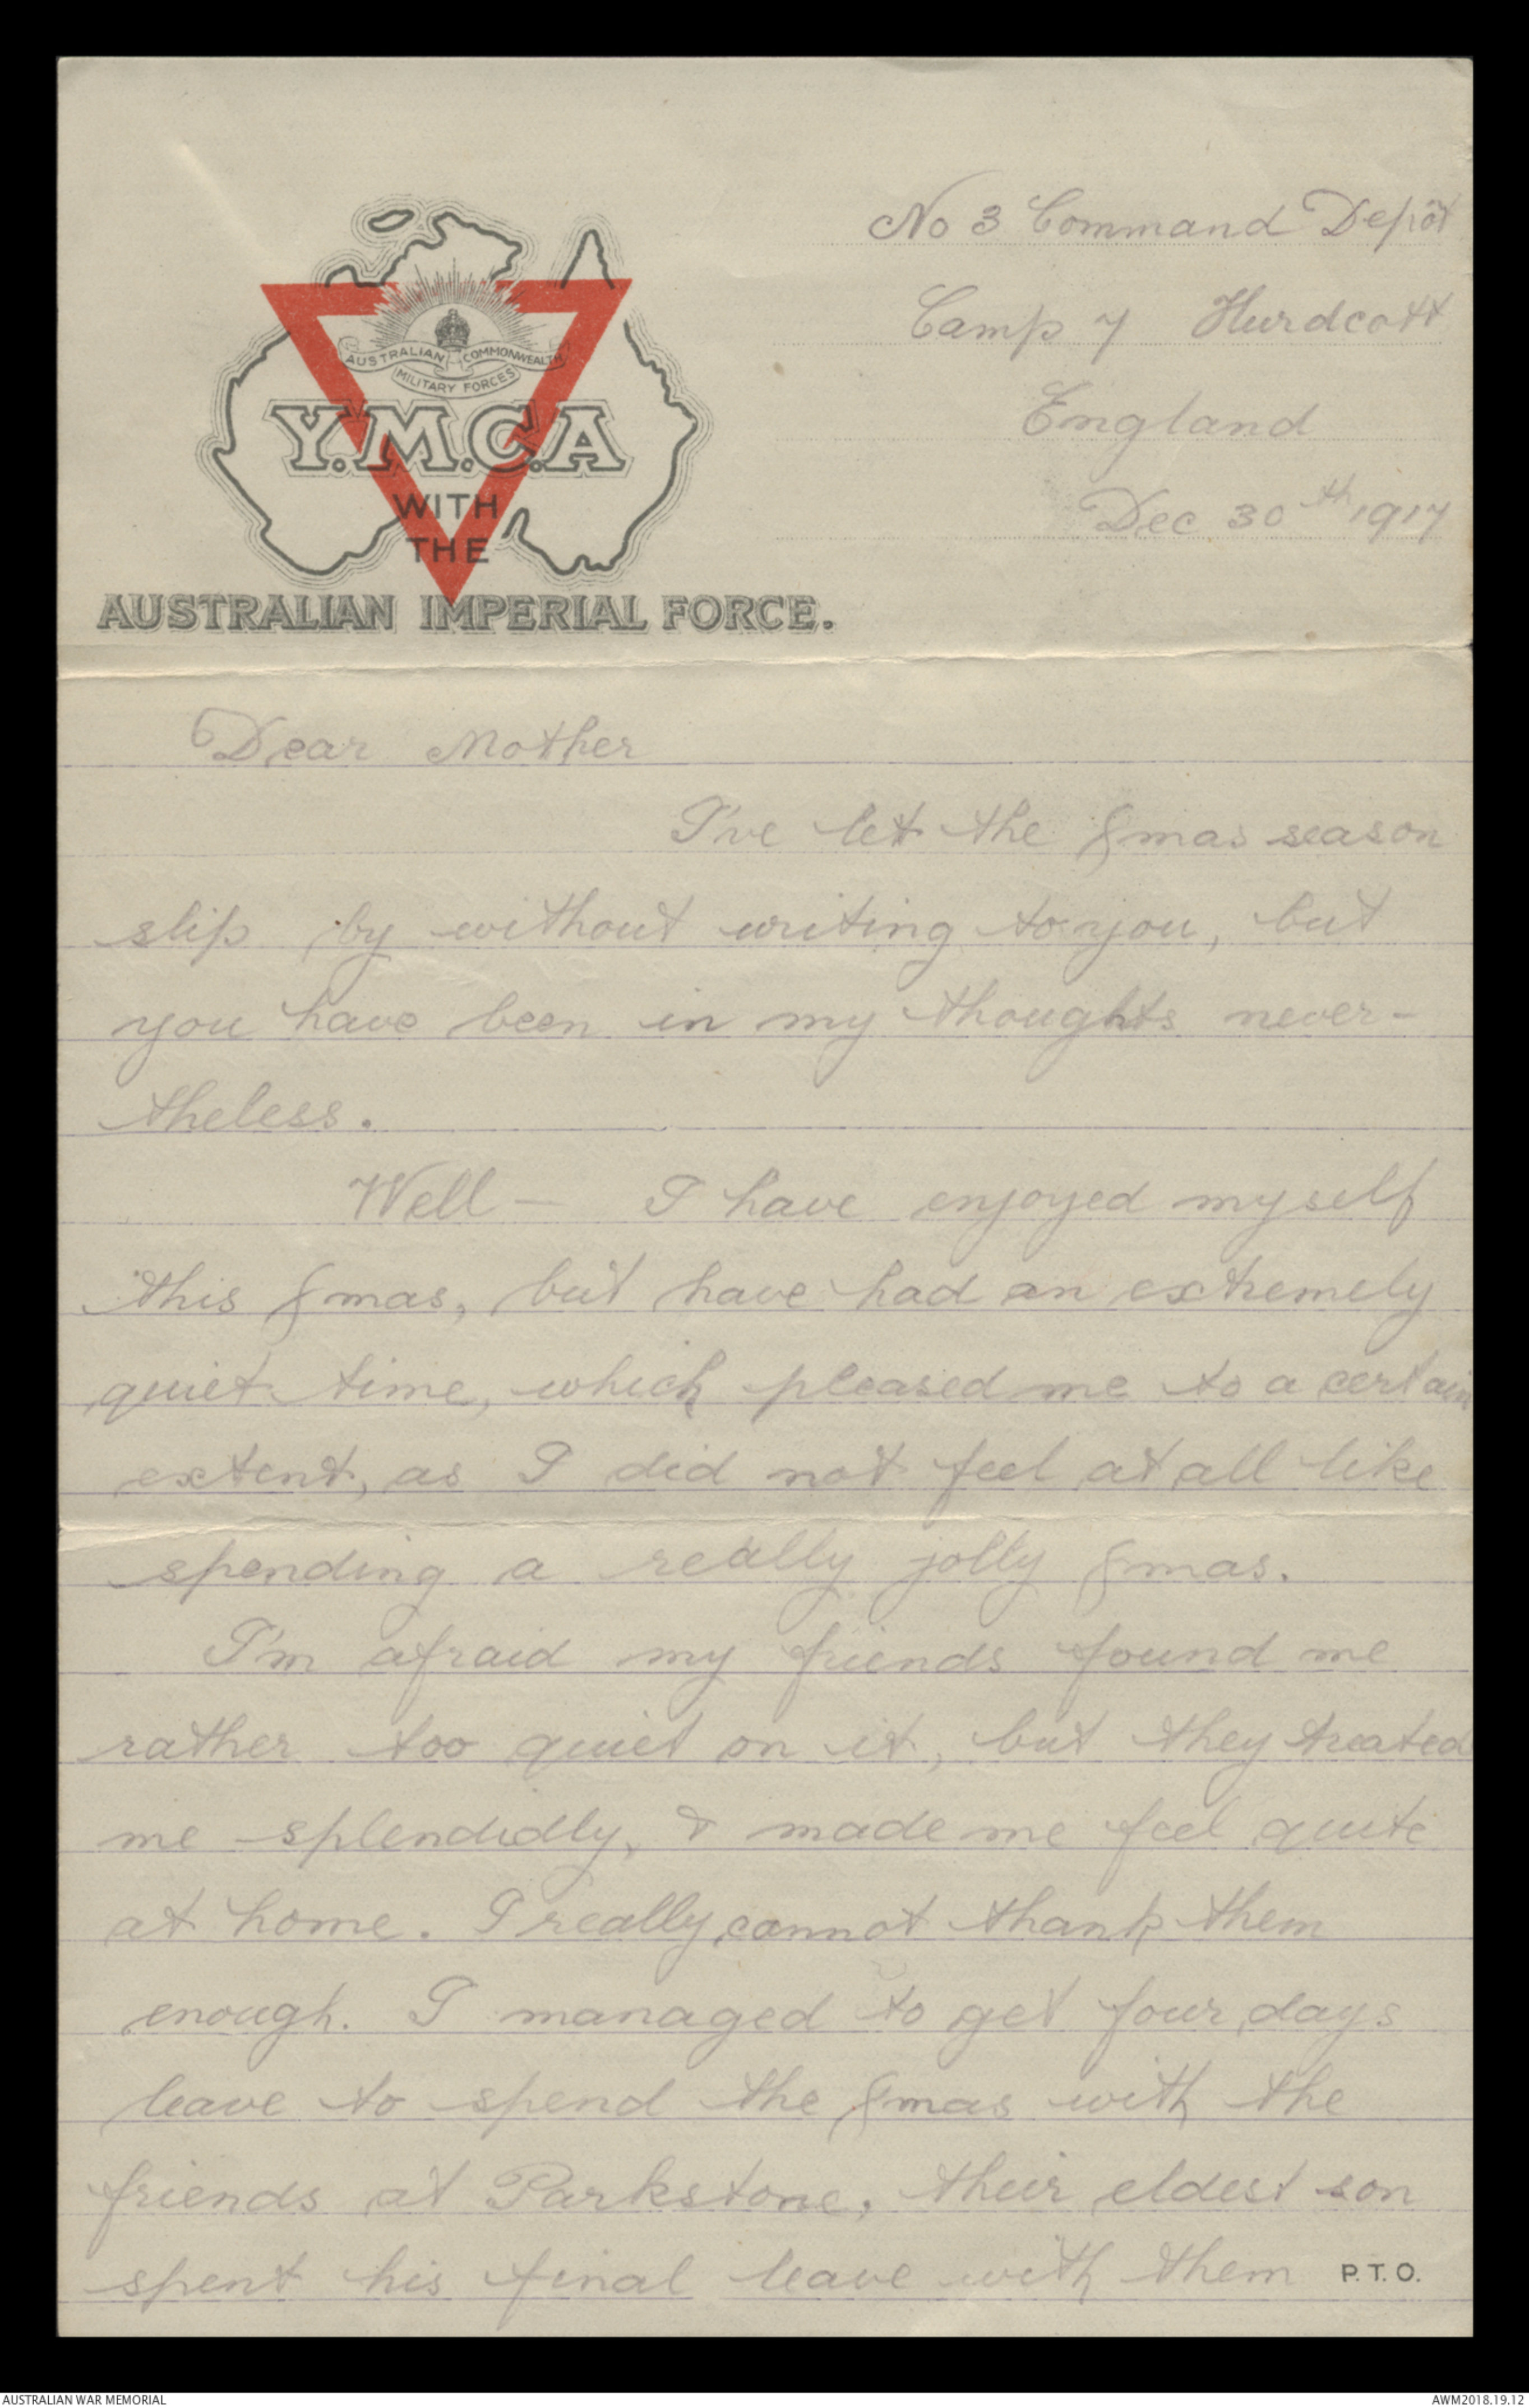 No 3 Command Depôt
Camp 7 Hurdcott
England
Dec 30th 1917
AUSTRALIAN COMMONWEALTH
MILITARY FORCES
Y.M.C.A
WITH
THE
AUSTRALIAN IMPERIAL FORCE.
Dear Mother
I've let the Xmas season
slip by without writing to you, but
you have been in my thoughts never-
theless.
Well — I have enjoyed myself
this Xmas, but have had an extremely
quiet time, which pleased me to a certain
extent, as I did not feel at all like
spending a really jolly Xmas.
I'm afraid my friends found me
rather too quiet on it, but they treated
me splendidly, & made me feel quite
at home. I really cannot thank them
enough. I managed to get four days
leave to spend the Xmas with the
friends at Parkstone, their eldest son
spent his final leave with them P.T.O.
AUSTRALIAN WAR MEMORIAL
AWM2018.19.12